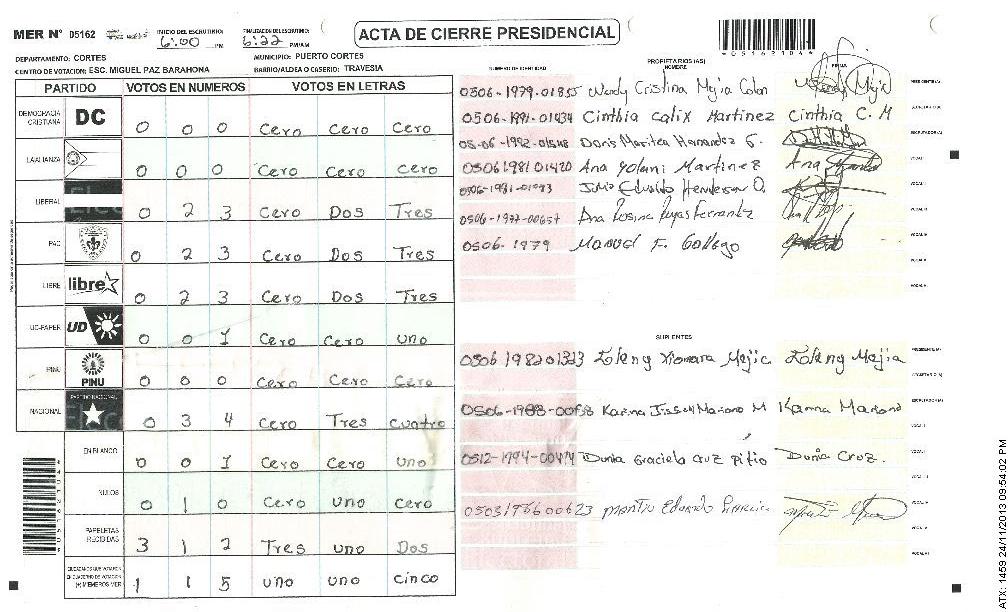 MER N° 05162
INICIO DEL ESCRUTINIO: 6:00 PM
FINALIZACION DEL ESCRUTINIO: 6:22 PM/AM
ACTA DE CIERRE PRESIDENCIAL
DEPARTAMENTO: CORTES
MUNICIPIO: PUERTO CORTES
CENTRO DE VOTACION: ESC. MIGUEL PAZ BARAHONA
BARRIO/ALDEA O CASERIO: TRAVESIA
PARTIDO VOTOS EN NUMEROS VOTOS EN LETRAS
DEMOCRACIA CRISTIANA DC 0 0 0 Cero Cero Cero
LA ALIANZA 0 0 0 Cero Cero cero
LIBERAL 0 2 3 Cero Dos Tres
PAC 0 2 3 Cero Dos Tres
LIBRE libre 0 2 3 Cero Dos Tres
UD-FAPER UD 0 0 1 Cero Cero uno
PINU PINU 0 0 0 Cero Cero Cero
NACIONAL PARTIDO NACIONAL 0 3 4 Cero Tres cuatro
EN BLANCO 0 0 1 Cero Cero uno
NULOS 0 1 0 Cero uno Cero
PAPELETAS RECIBIDAS 3 1 2 Tres uno Dos
CIUDADANOS QUE VOTARON EN CUADERNO DE VOTACION (+) MIEMBROS MER 1 1 5 uno uno cinco
NUMERO DE IDENTIDAD PROPIETARIOS (AS) NOMBRE FIRMA
0506-1979-01855 Wendy Cristina Mejia Colon Wendy Mejia PRESIDENTE(A)
0506-1991-01434 Cinthia Calix Martinez Cinthia C. M SECRETARIO(A)
05-06-1992-01548 Doris Maritza Hernandez G. ESCRUTADOR(A)
0506198101420 Ana Yolani Martinez Ana VOCAL I
0506-1981- Julio VOCAL II
0506-1977-00657 Ana Rosina VOCAL III
0506-1979 Manuel F. Gallego VOCAL IV
VOCAL V
VOCAL VI
SUPLENTES
0506198201323 Xiomara Mejia Mejia PRESIDENTE(A)
SECRETARIO(A)
0506-1988-00658 Karina Jissell Mariano M Karina Mariano ESCRUTADOR(A)
VOCAL I
0512-1994-00474 Dunia Graciela Cruz Dunia Cruz. VOCAL II
VOCAL III
0503197600623 Martin Eduardo VOCAL IV
VOCAL V
VOCAL VI
ATX: 1459 24/11/2013 09:54:02 PM